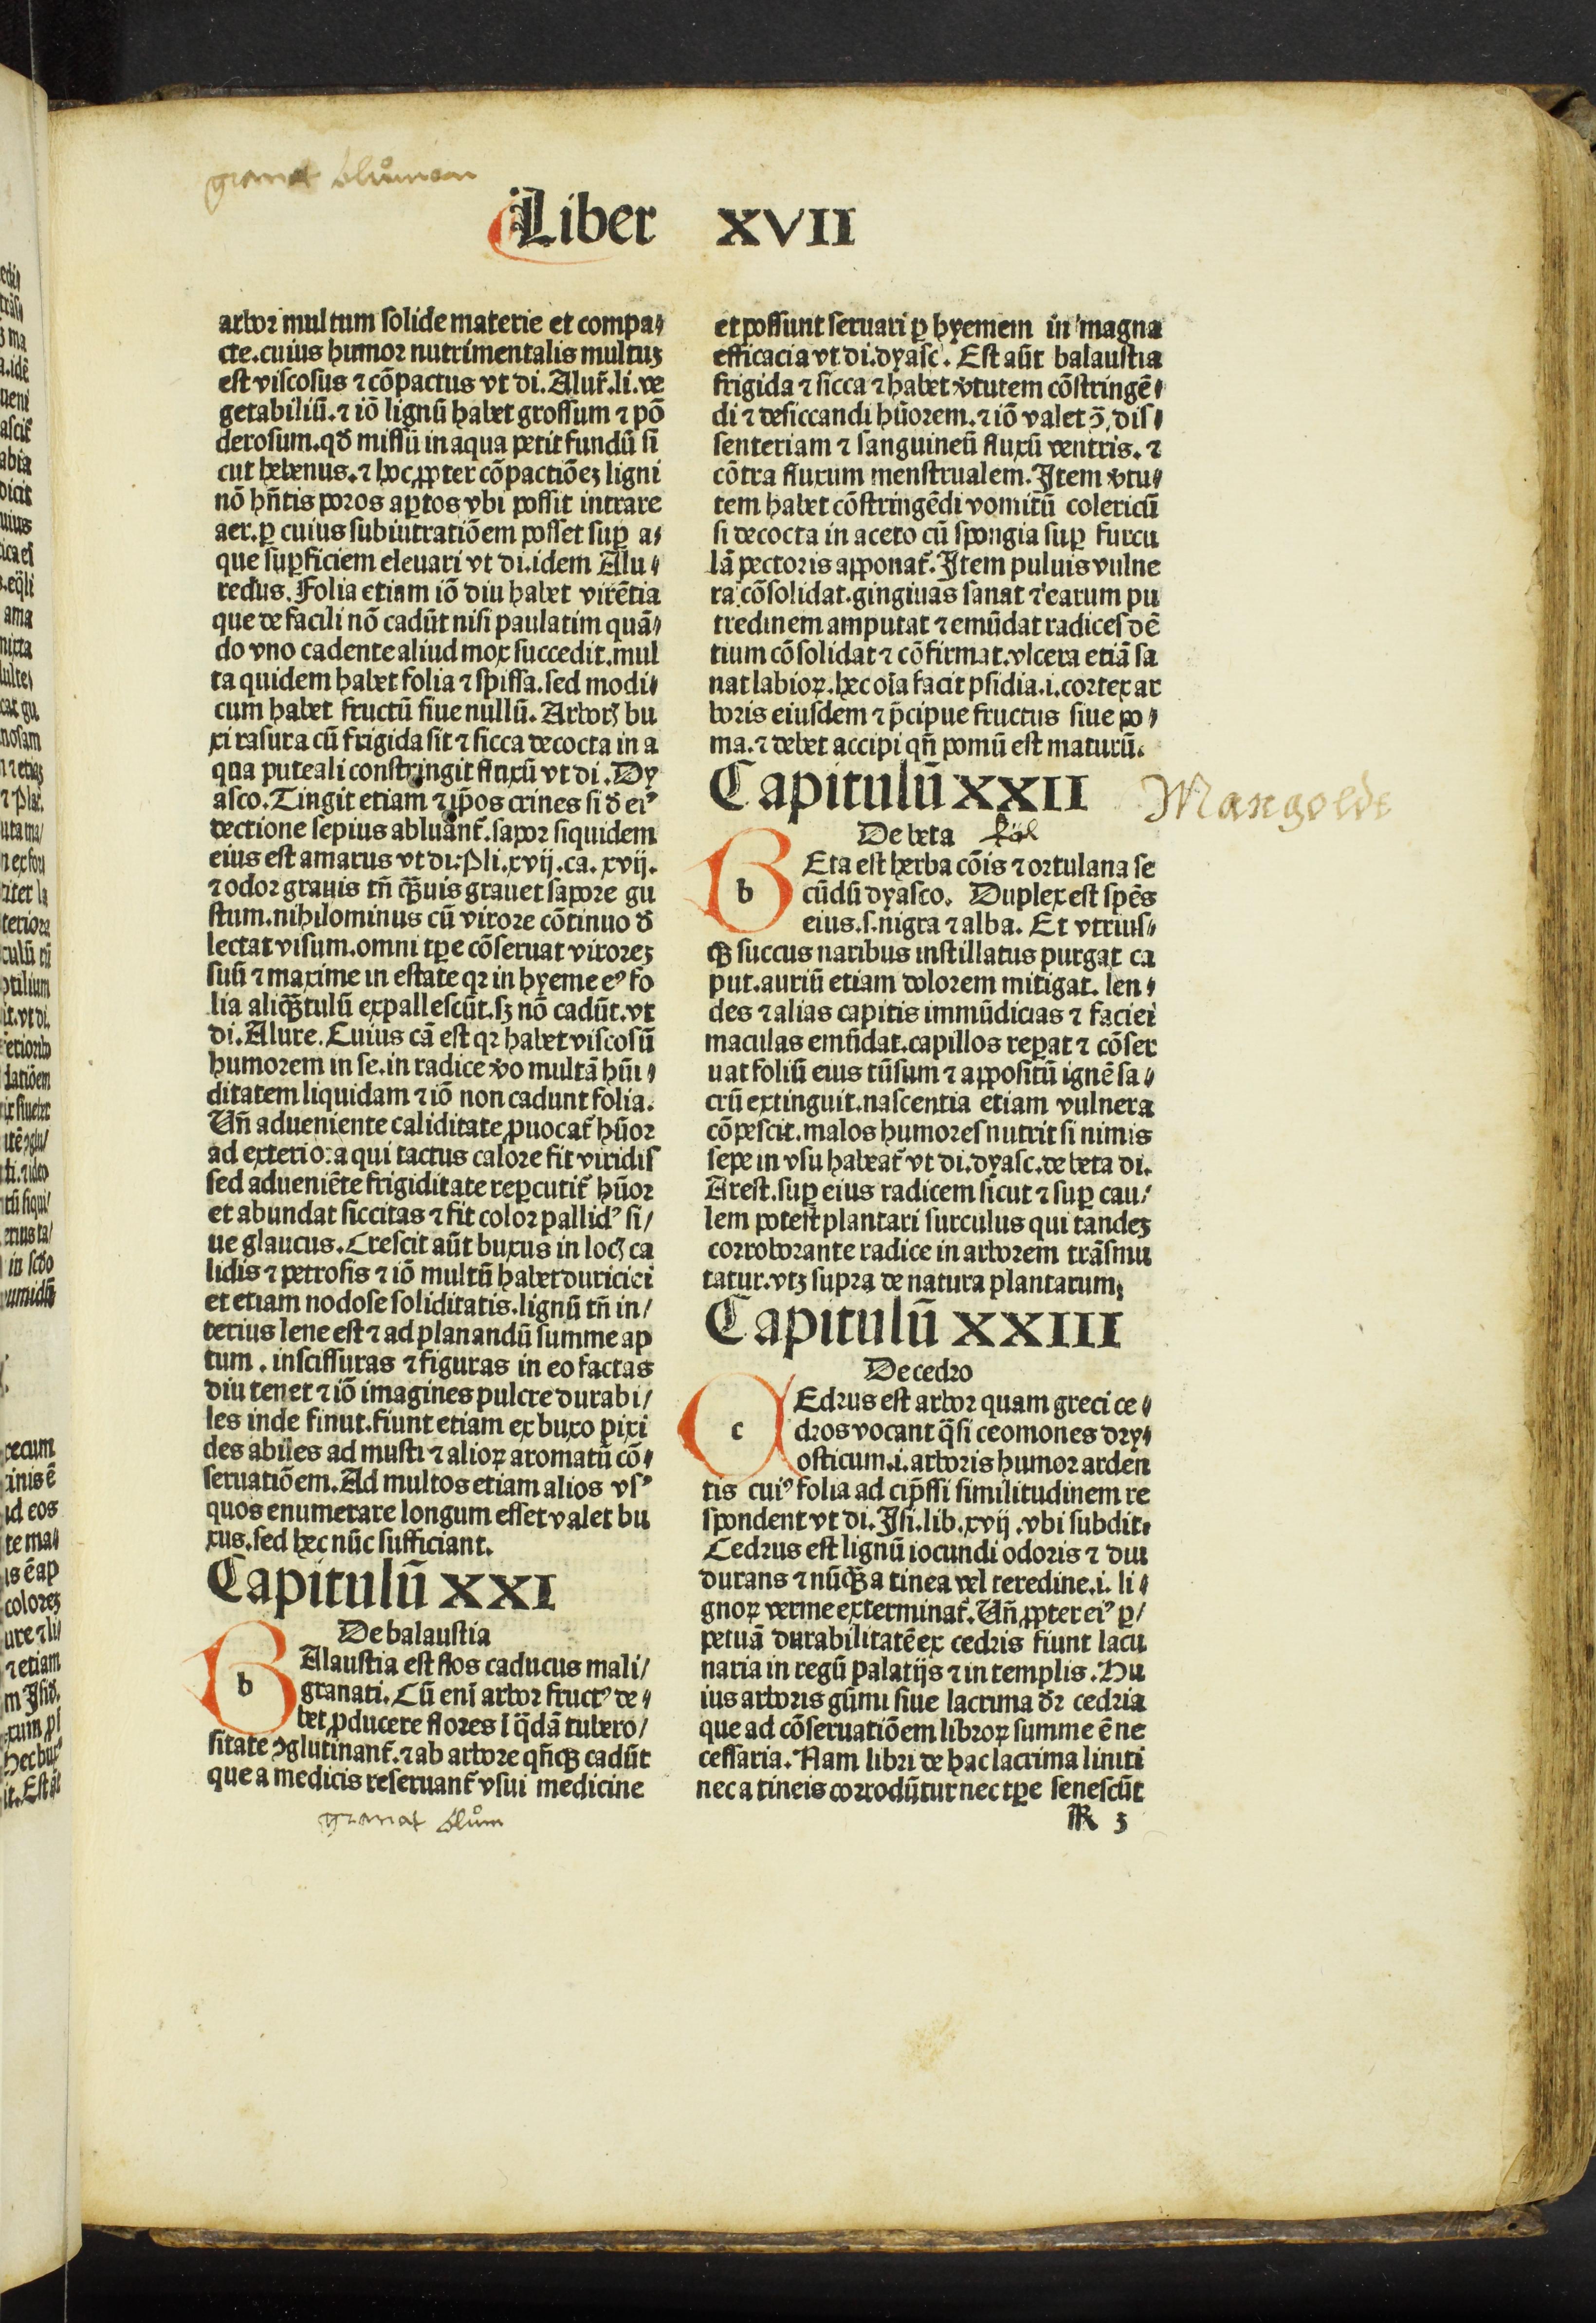 granat blůmen
Liber XVII
arbor multum solide materie et compa⸗
cte.cuius humor nutrimentalis multuꝫ
est viscosus ⁊ cōpactus vt di. Alur̄.li. ve
getabiliū.⁊ iō lignū habet grossum ⁊ pō
derosum.qđ missū in aqua petit fundū si
cut hebenus.⁊ hoc ꝓpter cōpactiōeꝫ ligni
nō hn̄tis poros aꝑtos vbi possit intrare
aer.ꝑ cuius subiutratiōem posset suꝑ a⸗
que suꝑficiem eleuari vt di.idem Alu⸗
redus. Folia etiam iō diu habet virētia
que de facili nō cadūt nisi paulatim quā⸗
do vno cadente aliud mox succedit.mul
ta quidem habet folia ⁊ spissa.sed modi⸗
cum habet fructū siue nullū. Arborꝭ bu
xi rasura cū frigida sit ⁊ sicca decocta in a
qua puteali constringit fluxū vt di. Dy
asco. Tingit etiam ⁊ ip̄os crines si đ eiꝰ
dectione sepius abluant̄.sapor siquidem
eius est amarus vt di. Pli. xvij. ca. xvij.
⁊ odor grauis tn̄ qꝙuis grauet sapore gu
stum.nihilominus cū virore cōtinuo đ
lectat visum.omni tꝑe cōseruat viroreꝫ
suū ⁊ maxime in estate qꝛ in hyeme eꝰ fo
lia aliqꝙtulū expallescūt.sꝫ nō cadūt.vt
di. Alure. Cuius cā est qꝛ habet viscosū
humorem in se.in radice v̄o multā hūi⸗
ditatem liquidam ⁊ iō non cadunt folia.
Un̄ adueniente caliditate ꝓuocat̄ hūor
ad exteriora qui tactus calore fit viridis
sed adueniēte frigiditate reꝑcutit̄ hūor
et abundat siccitas ⁊ fit color pallidꝰ si/
ue glaucus. Crescit aūt buxus in locꝭ ca
lidis ⁊ petrosis ⁊ iō multū habet duriciei
et etiam nodose soliditatis.lignū tn̄ in/
terius lene est ⁊ ad planandū summe ap
tum . inscissuras ⁊ figuras in eo factas
diu tenet ⁊ iō imagines pulcre durabi/
les inde finut.fiunt etiam ex buxo pixi
des abiles ad musti ⁊ alioꝝ aromatū cō⸗
seruatiōem. Ad multos etiam alios vsꝰ
quos enumerare longum esset valet bu
xus.sed hec nūc sufficiant.
Capitulū XXI
De balaustia
b Alaustia est flos caducus mali/
granati. Cū eni̅ arbor fructꝰ de⸗
bet ꝓducere flores i̅ q̄dā tubero/
sitate ꝯglutinant̄.⁊ ab arbore qn̄qꝫ cadūt
que a medicis reseruant̄ vsui medicine
granat blům
et possunt seruari ꝑ hyemem in magna
efficacia vt di. dyasc. Est aūt balaustia
frigida ⁊ sicca ⁊ habet v̄tutem cōstringē⸗
di ⁊ desiccandi hūorem.⁊ iō valet ꝯ̄ dis⸗
senteriam ⁊ sanguineū fluxū ventris. ⁊
cōtra fluxum menstrualem. Item v̄tu⸗
tem habet cōstringēdi vomitū colericū
si decocta in aceto cū spongia suꝑ furcu
lā pectoris apponat̄. Item puluis vulne
ra cōsolidat.gingiuas sanat ⁊ earum pu
tredinem amputat ⁊ emūdat radices dē
tium cōsolidat ⁊ cōfirmat.vlcera etiā sa
nat labioꝝ.hec oīa facit psidia.i.cortex ar
boris eiusdem ⁊ p̄cipue fructus siue po⸗
ma.⁊ debet accipi qn̄ pomū est maturū.
Capitulū XXII
Mangolde
De beta köl
b Eta est herba cōis ⁊ ortulana se
cūdū dyasco. Duplex est spēs
eius.s.nigra ⁊ alba. Et vtrius⸗
qꝫ succus naribus instillatus purgat ca
put.auriū etiam dolorem mitigat. len⸗
des ⁊ alias capitis immūdicias ⁊ faciei
maculas emūdat.capillos reꝑat ⁊ cōser
uat foliū eius tūsum ⁊ appositū ignē sa⸗
crū extinguit.nascentia etiam vulnera
cōpescit.malos humores nutrit si nimis
sepe in vsu habeat̄ vt di. dyasc. de beta di.
Arest. suꝑ eius radicem sicut ⁊ suꝑ cau/
lem potest plantari surculus qui tandeꝫ
corroborante radice in arborem trāsmu
tatur.vtꝫ supra de natura plantarum.
Capitulū XXIII
De cedro
c Edrus est arbor quam greci ce⸗
dros vocant q̄si ceomones dry⸗
osticum.i.arboris humor arden
tis cuiꝰ folia ad cip̄ssi similitudinem re
spondent vt di. Isi. lib. xvij .vbi subdit.
Cedrus est lignū iocundi odoris ⁊ diu
durans ⁊ nūqꝙ a tinea vel teredine.i. li⸗
gnoꝝ verme exterminat̄. Un̄ ꝓpter eiꝰ ꝑ/
petuā durabilitatē ex cedris fiunt lacu
naria in regū palatijs ⁊ in templis. Hu
ius arboris gūmi siue lacrima đꝛ cedria
que ad cōseruatiōem libroꝝ summe ē ne
cessaria. Nam libri de hac lacrima liniti
nec a tineis corrodūtur nec tꝑe senescūt
R 3